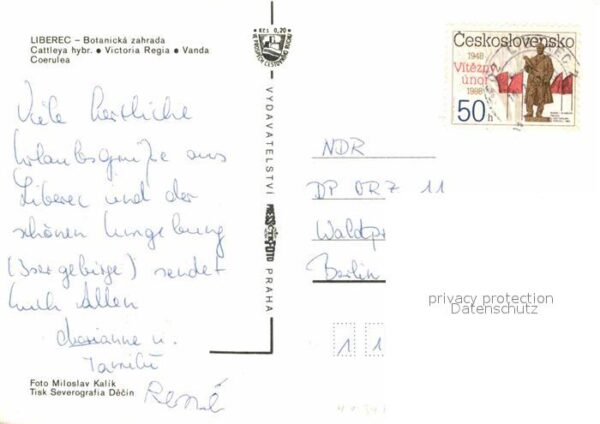 LIBEREC – Botanická zahrada
Cattleya hybr. ● Victoria Regia ● Vanda
Coerulea
Kčs 0,20
Viele herzliche
Urlaubsgrüße aus
Liberec und der
schönen Umgebung
(Isergebirge) sendet
Euch Allen
Marianne u.
Familie
René
Foto Miloslav Kalík
Tisk Severografia Děčín
VYDAVATELSTVÍ
PRAHA
Československo
1948
Vítězný
únor
1988
50h
NDR
DP VRZ 11
Waldpr
Berlin
11
privacy protection
Datenschutz